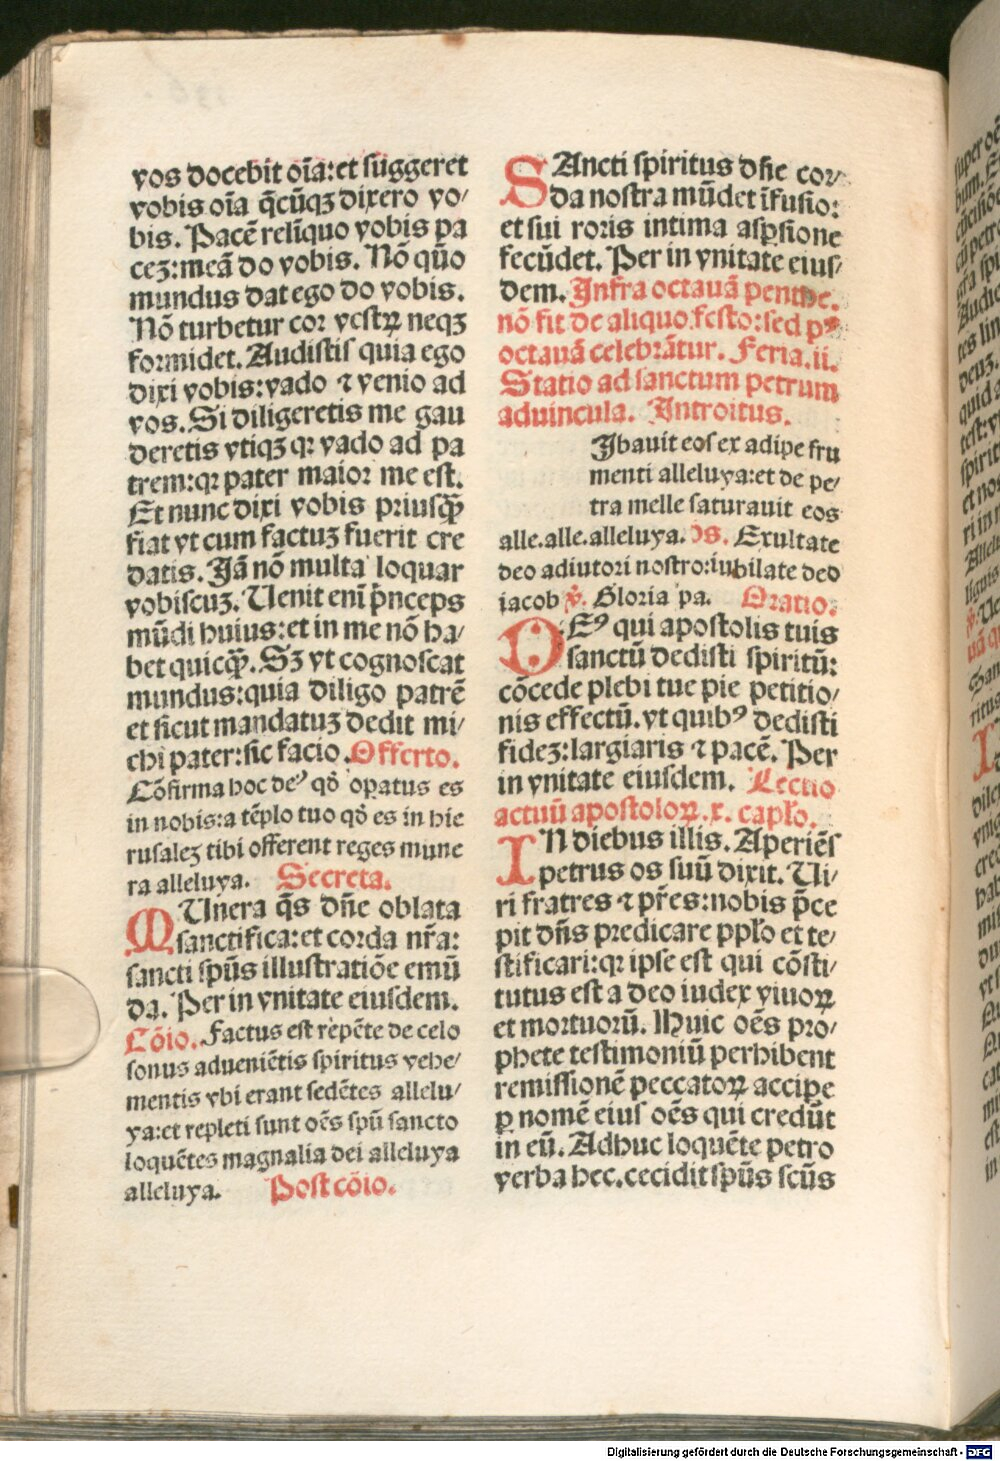 vos docebit oīa:et suggeret
vobis oīa q̄cūqꝫ dixero vo/
bis. Pacē relīquo vobis pa
ceꝫ:meā do vobis. Nō quō
mundus dat ego do vobis.
Nō turbetur cor vestꝝ neqꝫ
formidet. Audistis quia ego
dixi vobis:vado ⁊ venio ad
vos. Si diligeretis me gau
deretis vtiqꝫ qꝛ vado ad pa
trem:qꝛ pater maior me est.
Et nunc dixi vobis priusqꝫ̄
fiat vt cum factuꝫ fuerit cre
datis. Jā nō multa loquar
vobiscuꝫ. Uenit eni p̄nceps
mūdi huius:et in me nō ha/
bet quicqꝫ̄. Sꝫ vt cognoscat
mundus:quia diligo patrē
et sicut mandatuꝫ dedit mi/
chi pater:sic facio. Offerto.
Cōfirma hoc deꝰ qð opatus es
in nobis:a tēplo tuo qð es in hie
rusaleꝫ tibi offerent reges mune
ra alleluya. Secreta.
MUnera q̄s dn̄e oblata
sanctifica:et corda nr̄a:
sancti spūs illustratiōe emū
da. Per in vnitate eiusdem.
Cōio. Factus est repēte de celo
sonus adueniētis spiritus vehe/
mentis vbi erant sedētes allelu/
ya:et repleti sunt oēs spū sancto
loquētes magnalia dei alleluya
alleluya. Post cōio.
SAncti spiritus dn̄e cor/
da nostra mūdet īfusio:
et sui roris intima aspsione
fecūdet. Per in vnitate eius/
dem. Infra octauā penthe.
nō fit de aliquo festo:sed pꝰ
octauā celebrātur. Feria.ii.
Statio ad sanctum petrum
aduincula. Introitus.
Jbauit eos ex adipe fru
menti alleluya:et de pe/
tra melle saturauit eos
alle.alle.alleluya. ps. Exultate
deo adiutori nostro:iubilate deo
jacob ℣. Gloria pa. Oratio.
DEꝰ qui apostolis tuis
sanctū dedisti spiritū:
cōcede plebi tue pie petitio/
nis effectū. vt quibꝰ dedisti
fideꝫ:largiaris ⁊ pacē. Per
in vnitate eiusdem. Lectio
actuū apostoloꝝ.x. capło.
IN diebus illis. Aperiēs
petrus os suū dixit. Ui/
ri fratres ⁊ pr̄es:nobis p̄ce
pit dn̄s predicare ppło et te/
stificari:qꝛ ipse est qui cōsti/
tutus est a deo iudex viuoꝝ
et mortuorū. Huic oēs pro/
phete testimoniū perhibent
remissionē peccatoꝝ accipe
ꝑ nomē eius oēs qui credūt
in eū. Adhuc loquēte petro
verba hec.cecidit spūs scūs
Digitalisierung gefördert durch die Deutsche Forschungsgemeinschaft - DFG